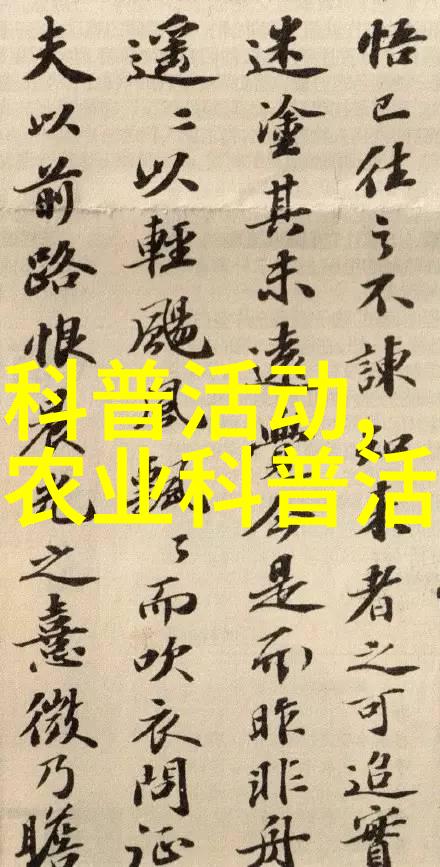 悟已往之不諫知来者之可追實
迷塗其未遠覺今是而昨非舟
遥〻以輕颺風飄〻而吹衣問征
夫以前路恨晨光之熹微乃瞻
科普活动,
农业科普活